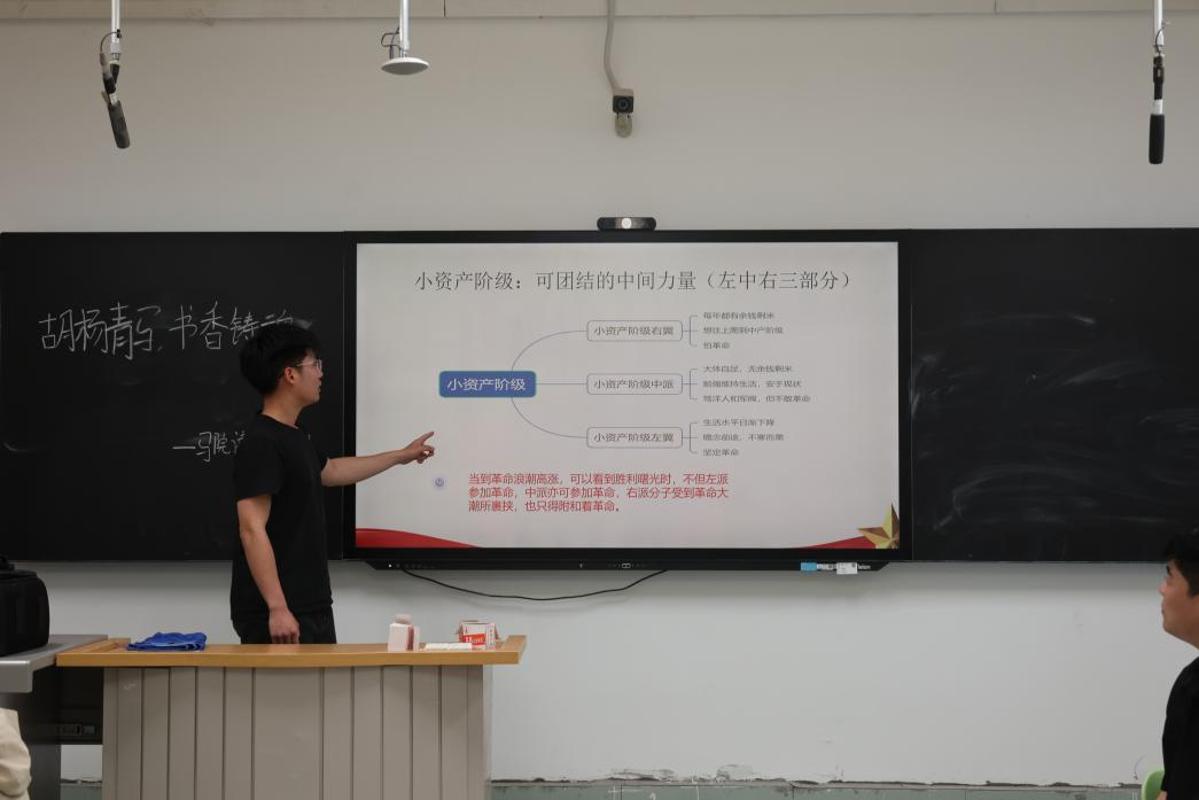 胡杨青马，书香铸魂
小资产阶级：可团结的中间力量（左中右三部分）
小资产阶级
小资产阶级右翼
每年都有余钱剩米
想往上爬到中产阶级
怕革命
小资产阶级中派
大体自足，无余钱剩米
勉强维持生活，安于现状
骂洋人和军阀，但不敢革命
小资产阶级左翼
生活水平日渐下降
坚定革命
当到革命浪潮高涨，可以看到胜利曙光时，不但左派
参加革命，中派亦可参加革命，右派分子受到革命大
潮所裹挟，也只得附和着革命。